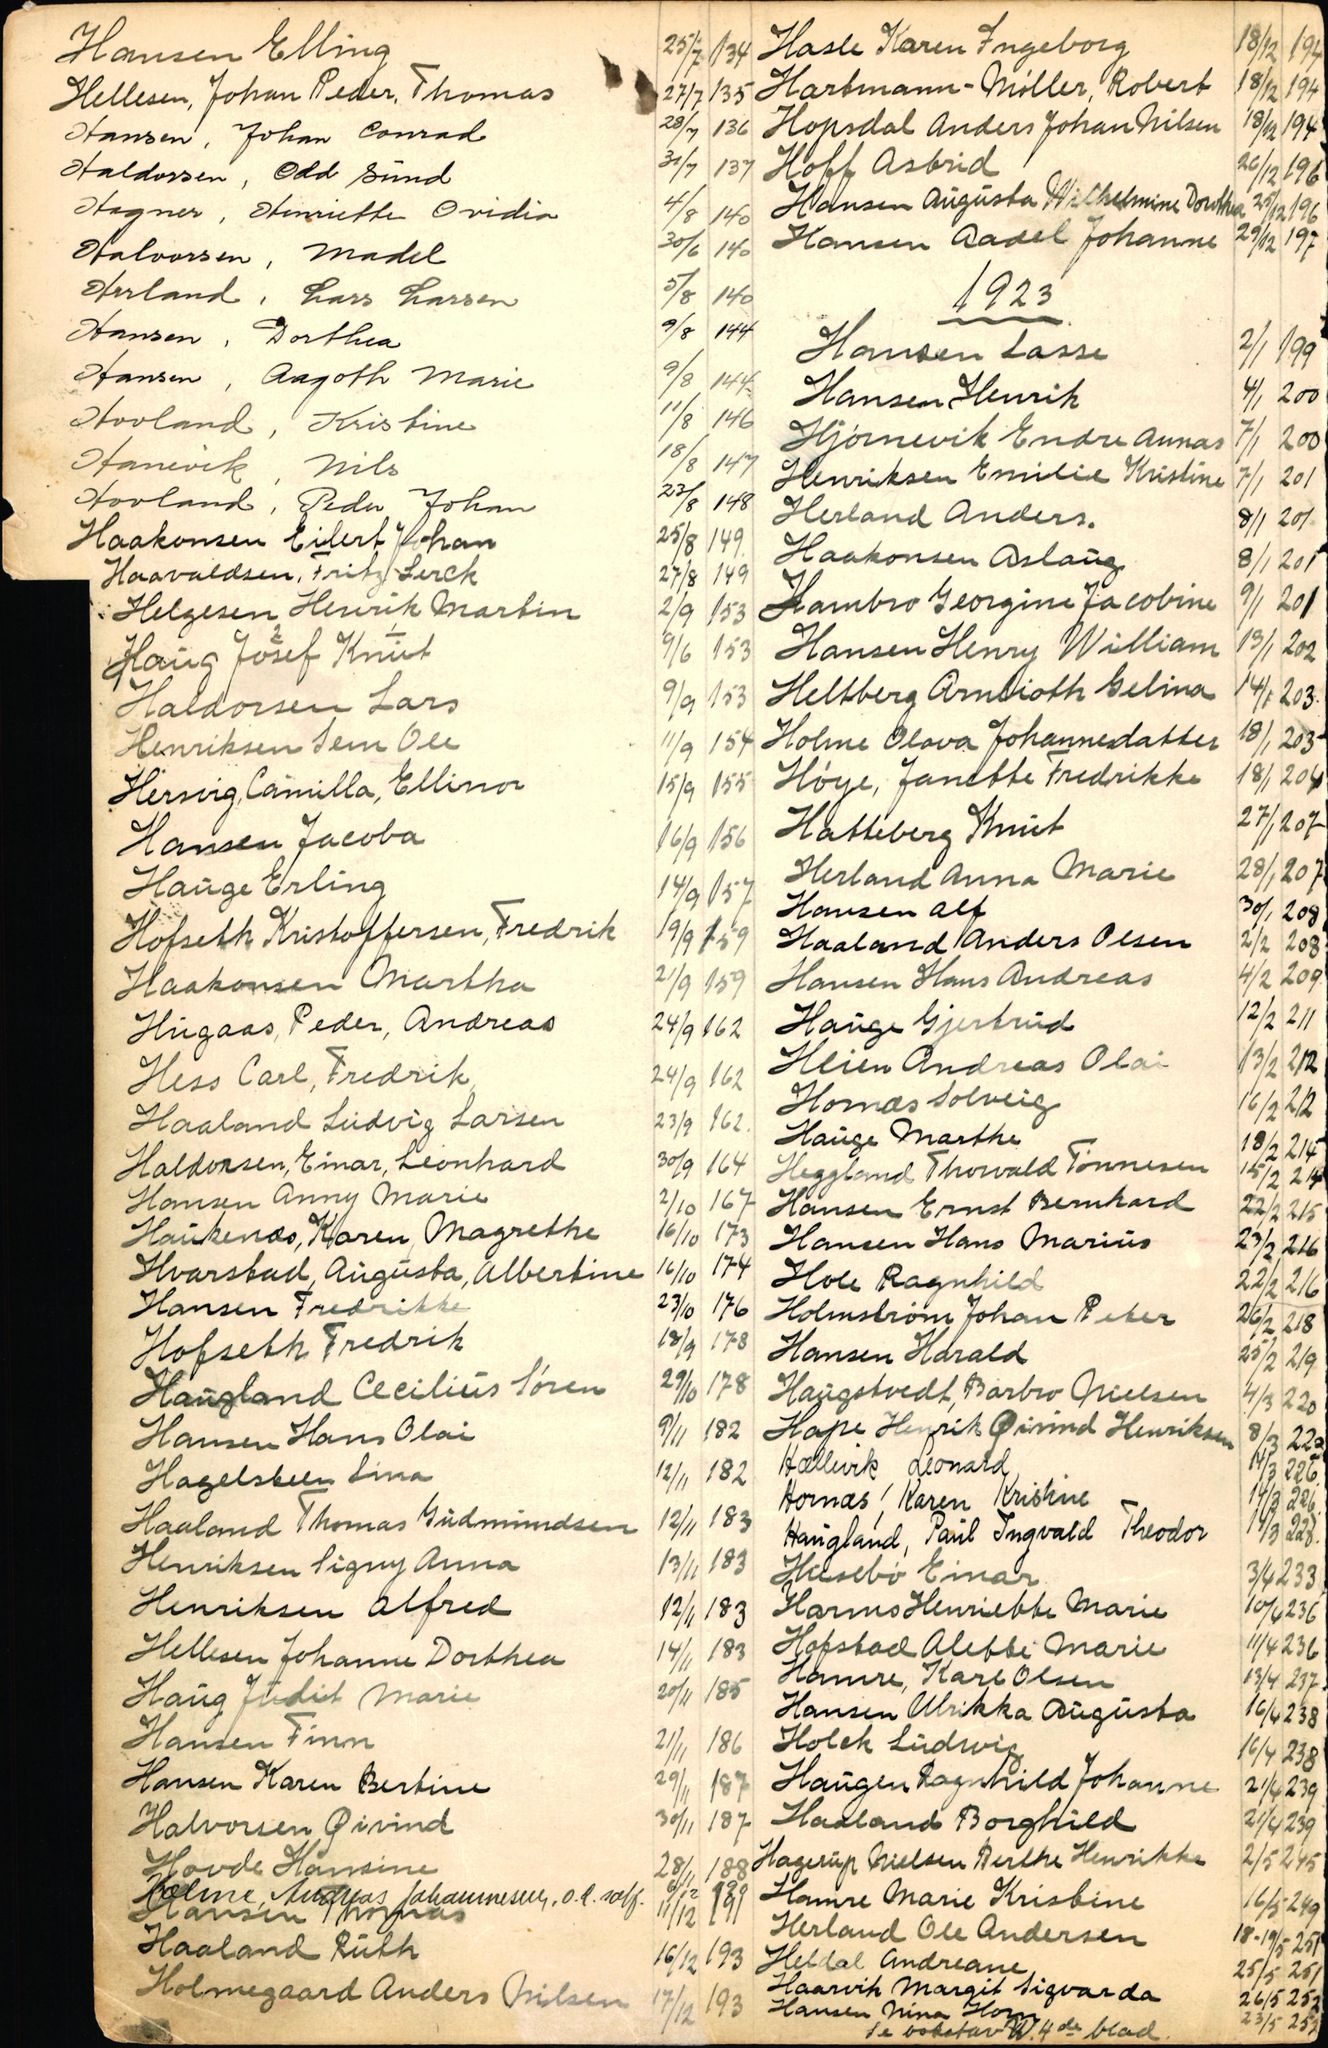 Hansen Elling 25/7 134
Hellesen, Johan Peder, Thomas 27/7 135
Hansen, Johan Conrad 28/7 136
Haldorsen, Odd Sund 31/7 137
Hagner, Henriette Ovidia 4/8 140
Halvorsen, Madel 30/6 140
Herland, Lars Larsen 5/8 140
Hansen, Dorthea 9/8 144
Hansen, Aagoth Marie 9/8 144
Hovland, Kristine 11/8 146
Hanevik, Nils 18/8 147
Hovland, Peder Johan 23/8 148
Haakonsen Eilert Johan 25/8 149
Haavaldsen, Fritz Lerck 27/8 149
Helgesen Henrik Martin 2/9 153
Haug Josef Knut 9/6 153
Haldorsen Lars 9/9 153
Henriksen Sem Ole 11/9 154
Hersvig, Camilla, Ellinor 15/9 155
Hansen Jacoba 16/9 156
Hauge Erling 14/9 157
Hofseth Kristoffersen, Fredrik 19/9 159
Haakonsen Martha 21/9 159
Hugaas, Peder, Andreas 24/9 162
Hess Carl, Fredrik, 24/9 162
Haaland Ludvig Larsen 23/9 162.
Haldorsen, Einar, Leonhard 30/9 164
Hansen Anny Marie 2/10 167
Haukenæs, Karen Magrethe 16/10 173
Hvarstad, Augusta, Albertine 16/10 174
Hansen Fredrikke 23/10 176
Hofseth Fredrik 18/9 178
Haugland Cecilius Sören 29/10 178
Hansen Hans Olai 9/11 182
Hagelsteen Lina 12/11 182
Haaland Thomas Gudmundsen 12/11 183
Henriksen Signy Anna 13/11 183
Henriksen Alfred 12/11 183
Hellesen Johanne Dorthea 14/11 183
Haug Judit Marie 20/11 185
Hansen Finn 21/11 186
Hansen Karen Bertine 29/11 187
Halvorsen Øivind 30/11 187
Hovde Hansine 28/11 188
Holme, Andreas Johannesen, o.l. self.
Hansen Thomas 11/12 191
Haaland Ruth 16/12 193
Holmegaard Anders Nilsen 17/12 193
Hasle Karen Ingeborg 18/12 194
Hartmann-Möller, Robert 18/12 194
Hopsdal Anders Johan Nilsen 18/12 194
Hoff Astrid 26/12 196
Hansen Augusta Wilhelmine Dorothea 25/12 196
Hansen Aadel Johanne 29/12 197
1923
Hansen Lasse 2/1 199
Hansen Henrik 4/1 200
Hjörnevik Endre Annas 7/1 200
Henriksen Emilie Kristine 7/1 201
Herland Anders. 8/1 201
Haakonsen Aslaug 8/1 201
Hambro Georgine Jacobine 9/1 201
Hansen Henry William 13/1 202
Heltberg Arnlioth Gelina 14/1 203.
Holme Olava Johannesdatter 18/1 203
Høye, Janette Fredrikke 18/1 204
Hatteberg Knut 27/1 207
Herland Anna Marie 28/1 207
Hansen Alf 30/1 208
Haaland Anders Olsen 2/2 208
Hansen Hans Andreas 4/2 209
Hauge Gjertrud 12/2 211
Heien Andreas Olai 13/2 212
Hornæs Solveig 16/2 212
Hauge Marthe 18/2 214
Heggland Thorvald Tönnesen 15/2 214
Hansen Ernst Bernhard 22/2 215
Hansen Hans Marius 23/2 216
Hole Ragnhild 22/2 216
Holmström Johan Peter 26/2 218
Hansen Harald 25/2 219
Haugstvedt, Barbro Nielsen 4/3 220
Hope Henrik Øivind Henriksen 8/3 222
Hællevik Leonard 14/3 226
Hornæs, Karen Kristine 14/3 226
Haugland, Paul Ingvald Theodor 19/3 228.
Husebö Einar 3/4 233
Harms Henriette Marie 10/4 236
Hofstad Alette Marie 11/4 236
Hamre, Karl Olsen 13/4 237
Hansen Ulrikka Augusta 16/4 238
Holck Ludwig 16/4 238
Haugen Ragnhild Johanne 21/4 239
Haaland Borghild 21/4 239
Hagerup Nielsen Berthe Henrikke 2/5 245
Hamre Marie Kristine 16/5 249
Herland Ole Andersen 18-19/5 251
Heldal Andreane 25/5 251
Haarvik Margit Sigvarda 26/5 252
Hansen Nina Horn 23/5 252
Se bokstav W. 4de blad.